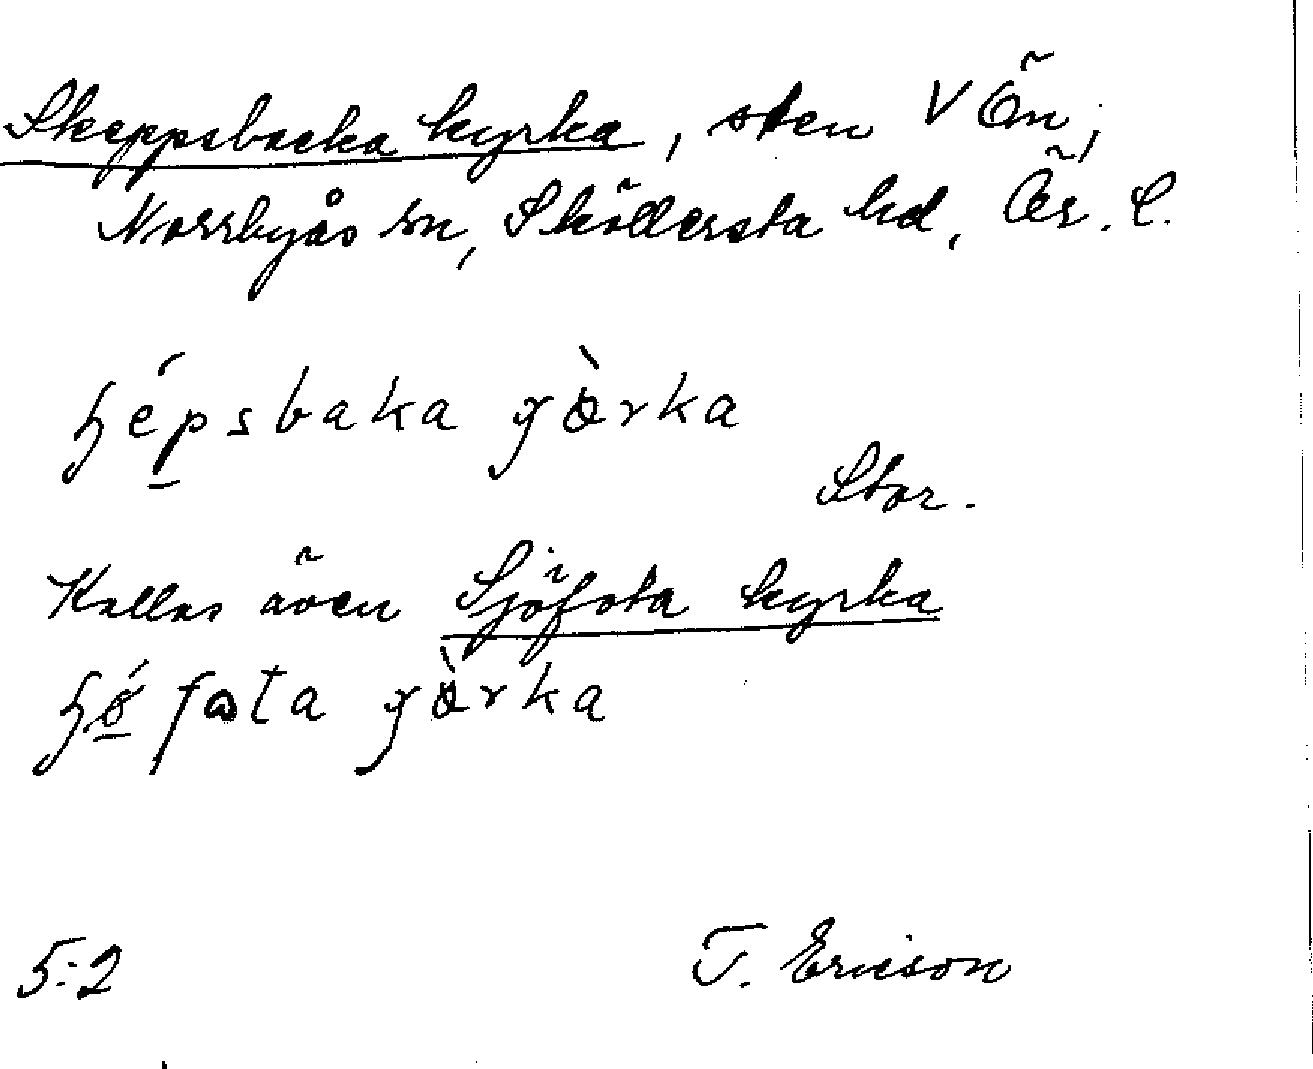 Skeppsbacka kyrka, sten V Ön,
Norrbyås sn, Sköllersta hd, Ör. l.
ɧépsbaka
Stor.
Kallas även Sjöfota kyrka
5:2 T. Ericson